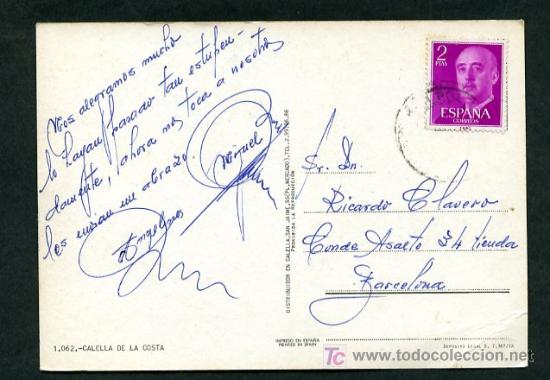 Nos alegramos mucho
lo hayan pasado tan estupen-
damente, ahora nos toca a nosotros
les envian un abrazo.
Miguel
Angelines
2
PTAS
ESPAÑA
CORREOS
Sr. Dn.
Ricardo Clavero
Conde Asalto 34 tienda
Barcelona
DISTRIBUIDOR EN CALELLA, SAN JAIME,
PROHIBIDA LA REPRODUCCIÓN
1.062.-CALELLA DE LA COSTA
IMPRESO EN ESPAÑA
PRINTED IN SPAIN
DEPÓSITO LEGAL B.
todocoleccion
www.todocoleccion.net